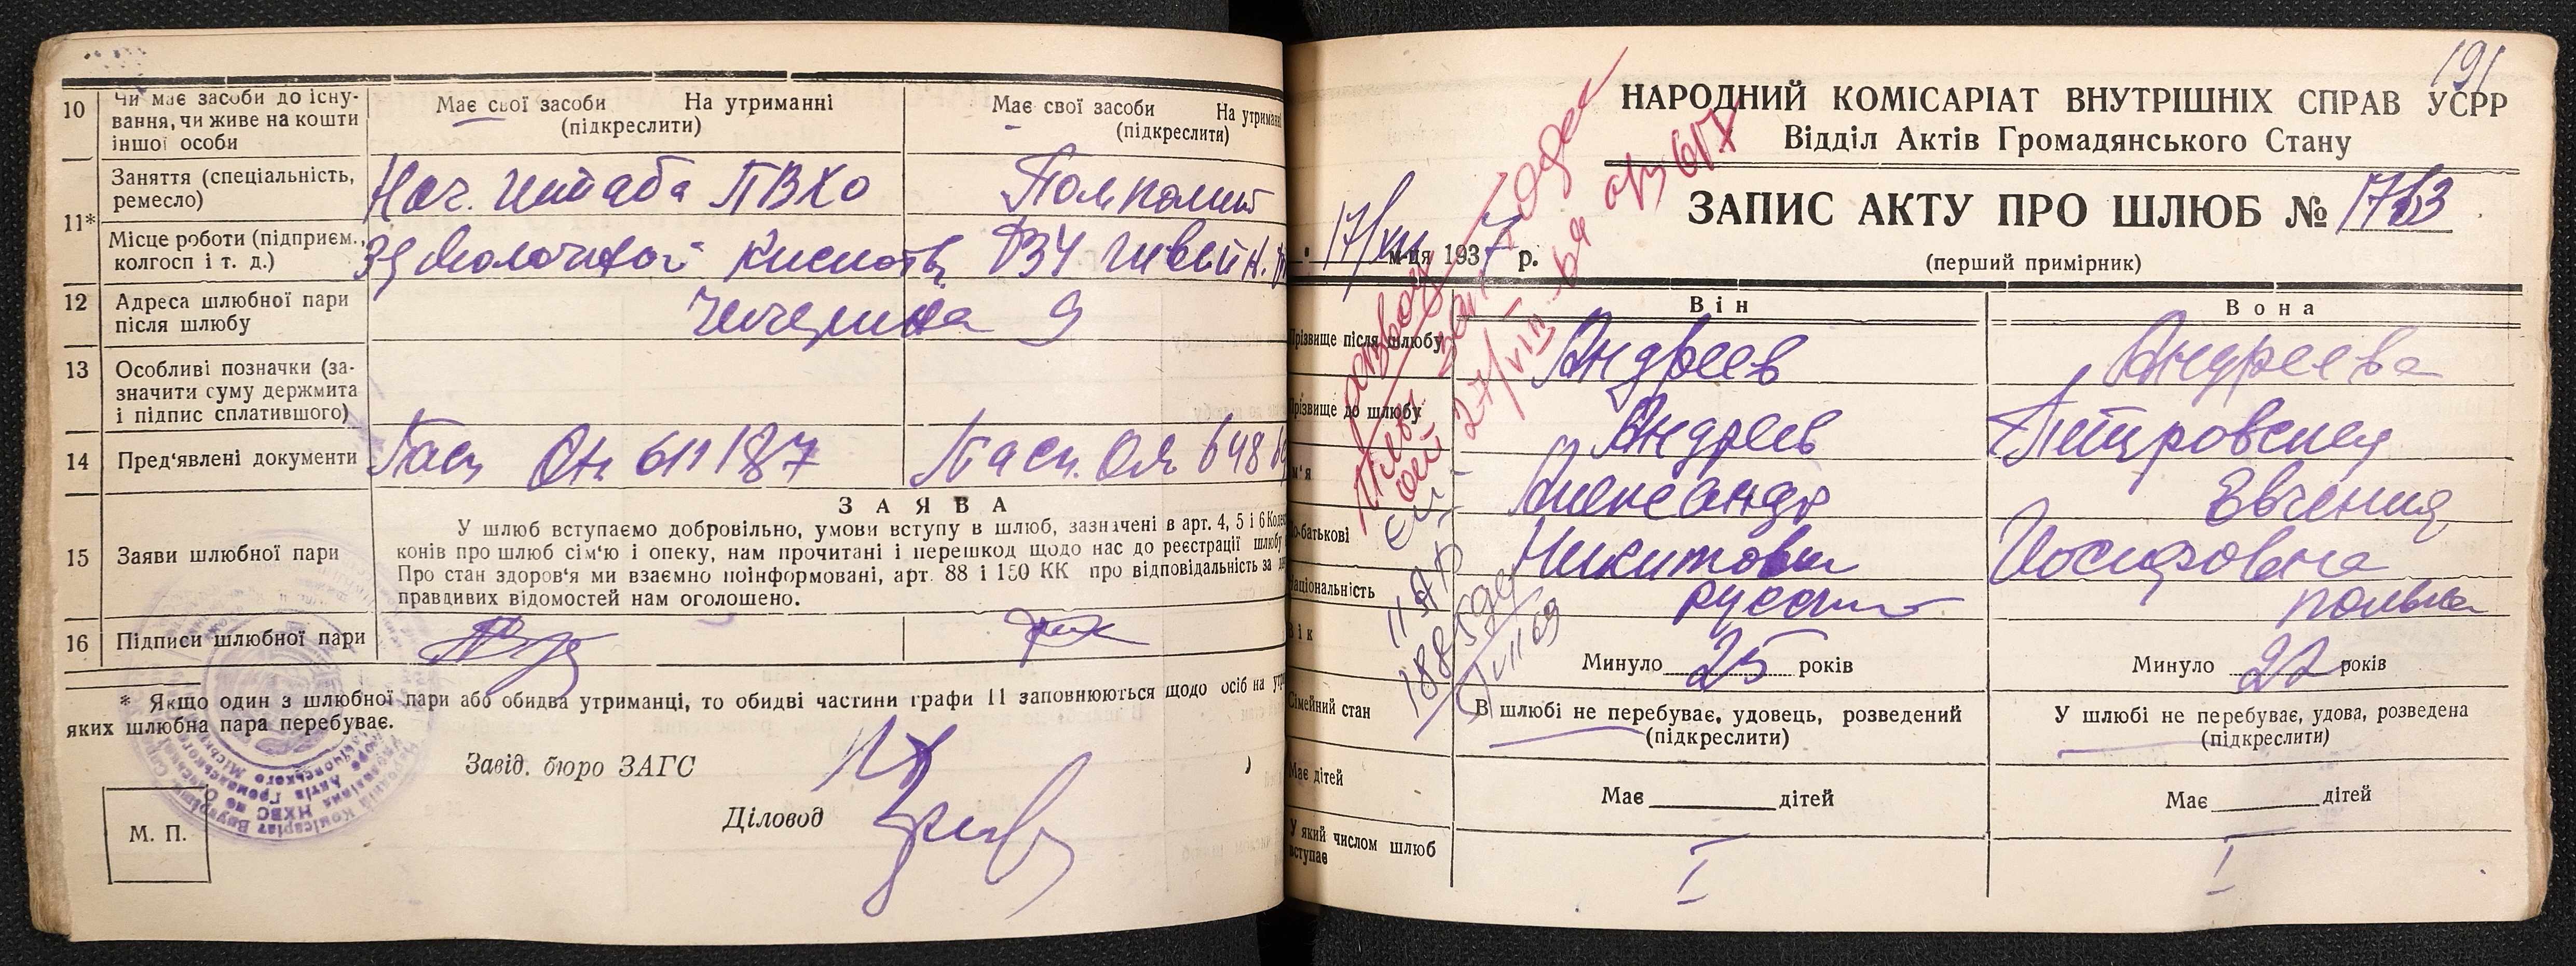 10
Чи має засоби до існу-
вання, чи живе на кошти
іншої особи
Має свої засоби На утриманні
(підкреслити)
Має свої засоби На утриманні
(підкреслити)
11*
Заняття (спеціальність,
ремесло)
Нач. штаба ПВХО
Місце роботи (підприєм.,
колгосп і т. д.)
Молочной Кислоты
ФЗУ швейн.
12
Адреса шлюбної пари
після шлюбу
Чичерина 9
13
Особливі позначки (за-
значити суму держмита
і підпис сплатившого)
14
Пред'явлені документи
Пасп 611187
Пасп. 648
15
Заяви шлюбної пари
ЗАЯВА
У шлюб вступаємо добровільно, умови вступу в шлюб, зазначені в арт. 4, 5 і 6 Кодек
конів про шлюб сім'ю і опеку, нам прочитані і перешкод щодо нас до реєстрації шлюбу
Про стан здоров'я ми взаємно поінформовані, арт. 88 і 150 КК про відповідальність за
правдивих відомостей нам оголошено.
16
Підписи шлюбної пари
* Якщо один з шлюбної пари або обидва утриманці, то обидві частини графи 11 заповнюються щодо осіб на
яких шлюбна пара перебуває.
Завід. бюро ЗАГС
Діловод
М. П.
191
НАРОДНИЙ КОМІСАРІАТ ВНУТРІШНІХ СПРАВ УСРР
Відділ Актів Громадянського Стану
ЗАПИС АКТУ ПРО ШЛЮБ № 1733
17/XII м-ця 1937 р.
(перший примірник)
Він
Вона
Прізвище після шлюбу
Андреев
Андреева
Прізвище до шлюбу
Андреев
Петровская
м'я
Александр
Евгения
По-батькові
Никитович
Иосифовна
Національність
русский
полька
Вік
Минуло 25 років
Минуло 22 років
Сімейний стан
В шлюбі не перебуває, удовець, розведений
(підкреслити)
У шлюбі не перебуває, удова, розведена
(підкреслити)
Має дітей
Має дітей
Має дітей
У який числом шлюб
вступає
I
I